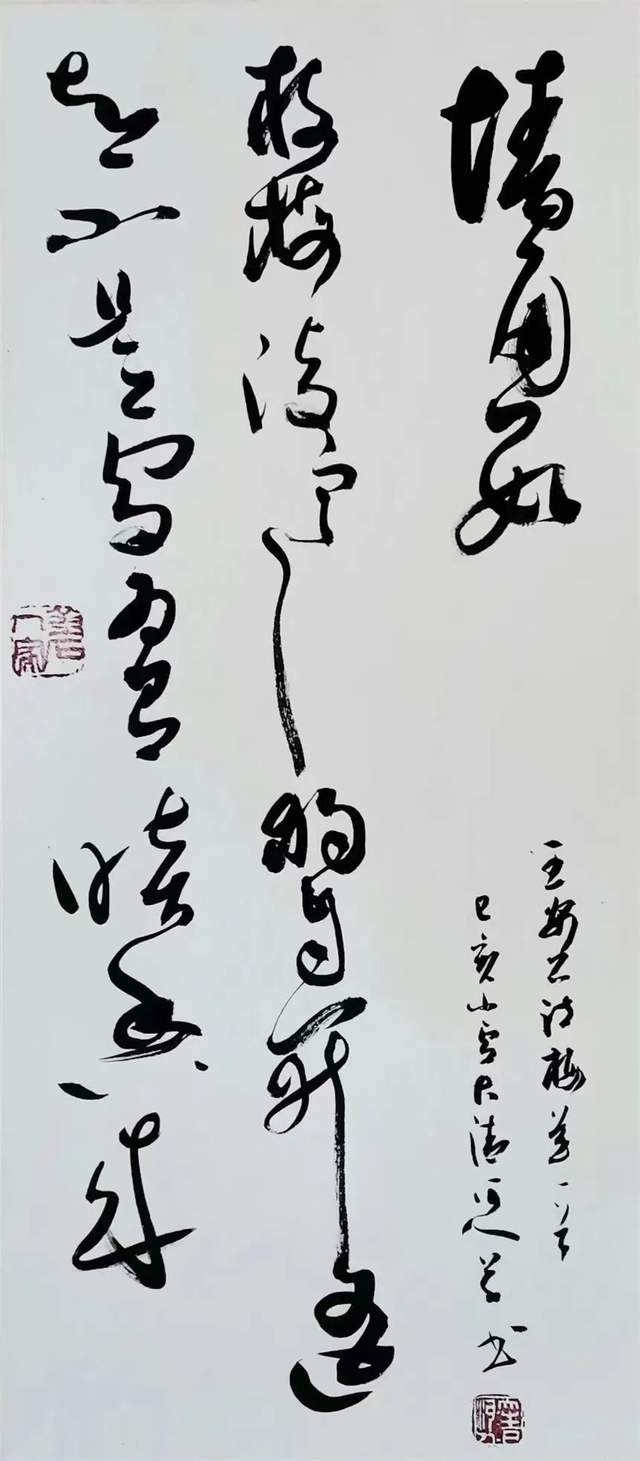 墙角数
枝梅凌寒独自开遥
知不是雪为有暗香来
王安石诗梅花一首
己亥小雪大清书